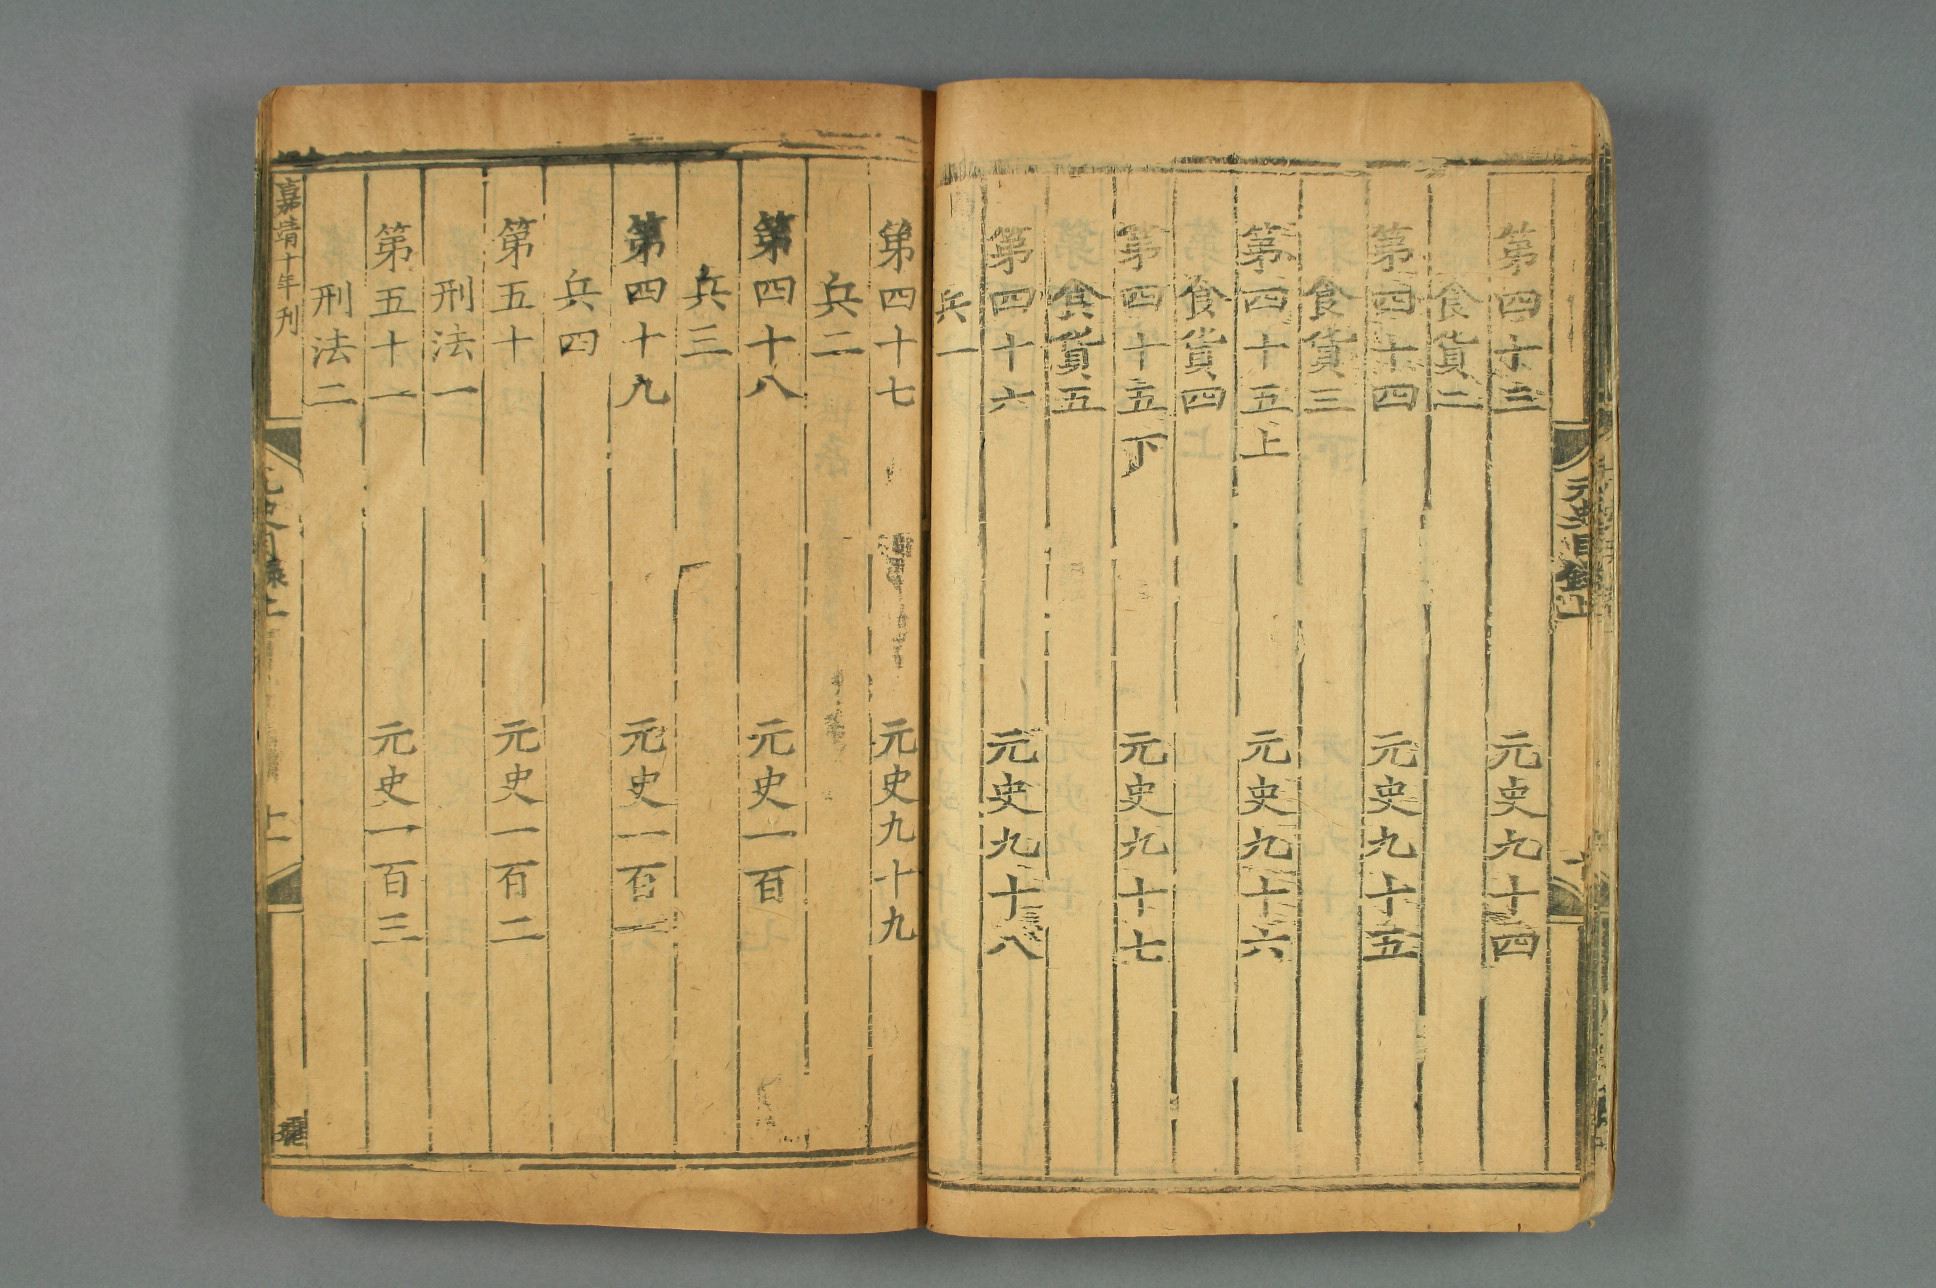 元史目錄上
第四十三 元史九十四
食貨二
第四十四 元史九十五
食貨三
第四十五上 元史九十六
食貨四
第四十五下 元史九十七
食貨五
第四十六 元史九十八
兵一
第四十七 元史九十九
兵二
第四十八 元史一百
兵三
第四十九 元史一百一
兵四
第五十 元史一百二
刑法一
第五十一 元史一百三
刑法二
嘉靖十年刊
元史目錄上